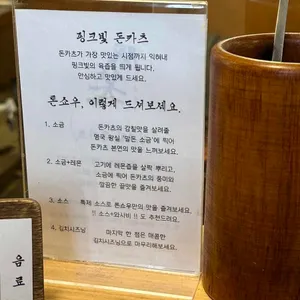 핑크빛 돈카츠
돈카츠가 가장 맛있는 시점까지 익혀내
핑크빛의 육즙을 띄게 됩니다.
안심하고 맛있게 드세요.
론쇼우, 이렇게 드셔보세요.
1. 소금 돈카츠의 감칠맛을 살려줄
영국 왕실 '말돈 소금'에 찍어
돈카츠 본연의 맛을 느껴보세요.
2. 소금+레몬 고기에 레몬즙을 살짝 뿌리고,
소금에 찍어 돈카츠의 풍미와
깔끔한 끝맛을 즐겨보세요.
3. 소스 특제 소스로 론쇼우만의 맛을 즐겨보세요.
!! 소스+와사비 !! 도 추천드려요.
4. 김치시즈닝 마지막 한 점은 매콤한
김치시즈닝으로 마무리해보세요.
음료